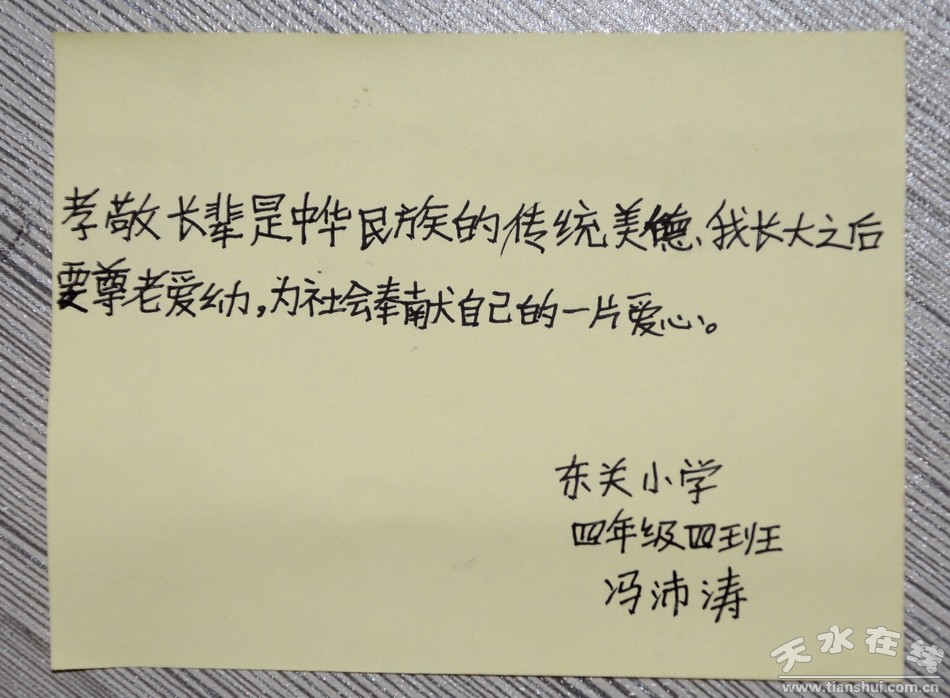 孝敬长辈是中华民族的传统美德、我长大之后
要尊老爱幼,为社会奉献自己的一片爱心。
东关小学
四年级四班
冯沛涛
天水在线
www.tianshui.com.cn